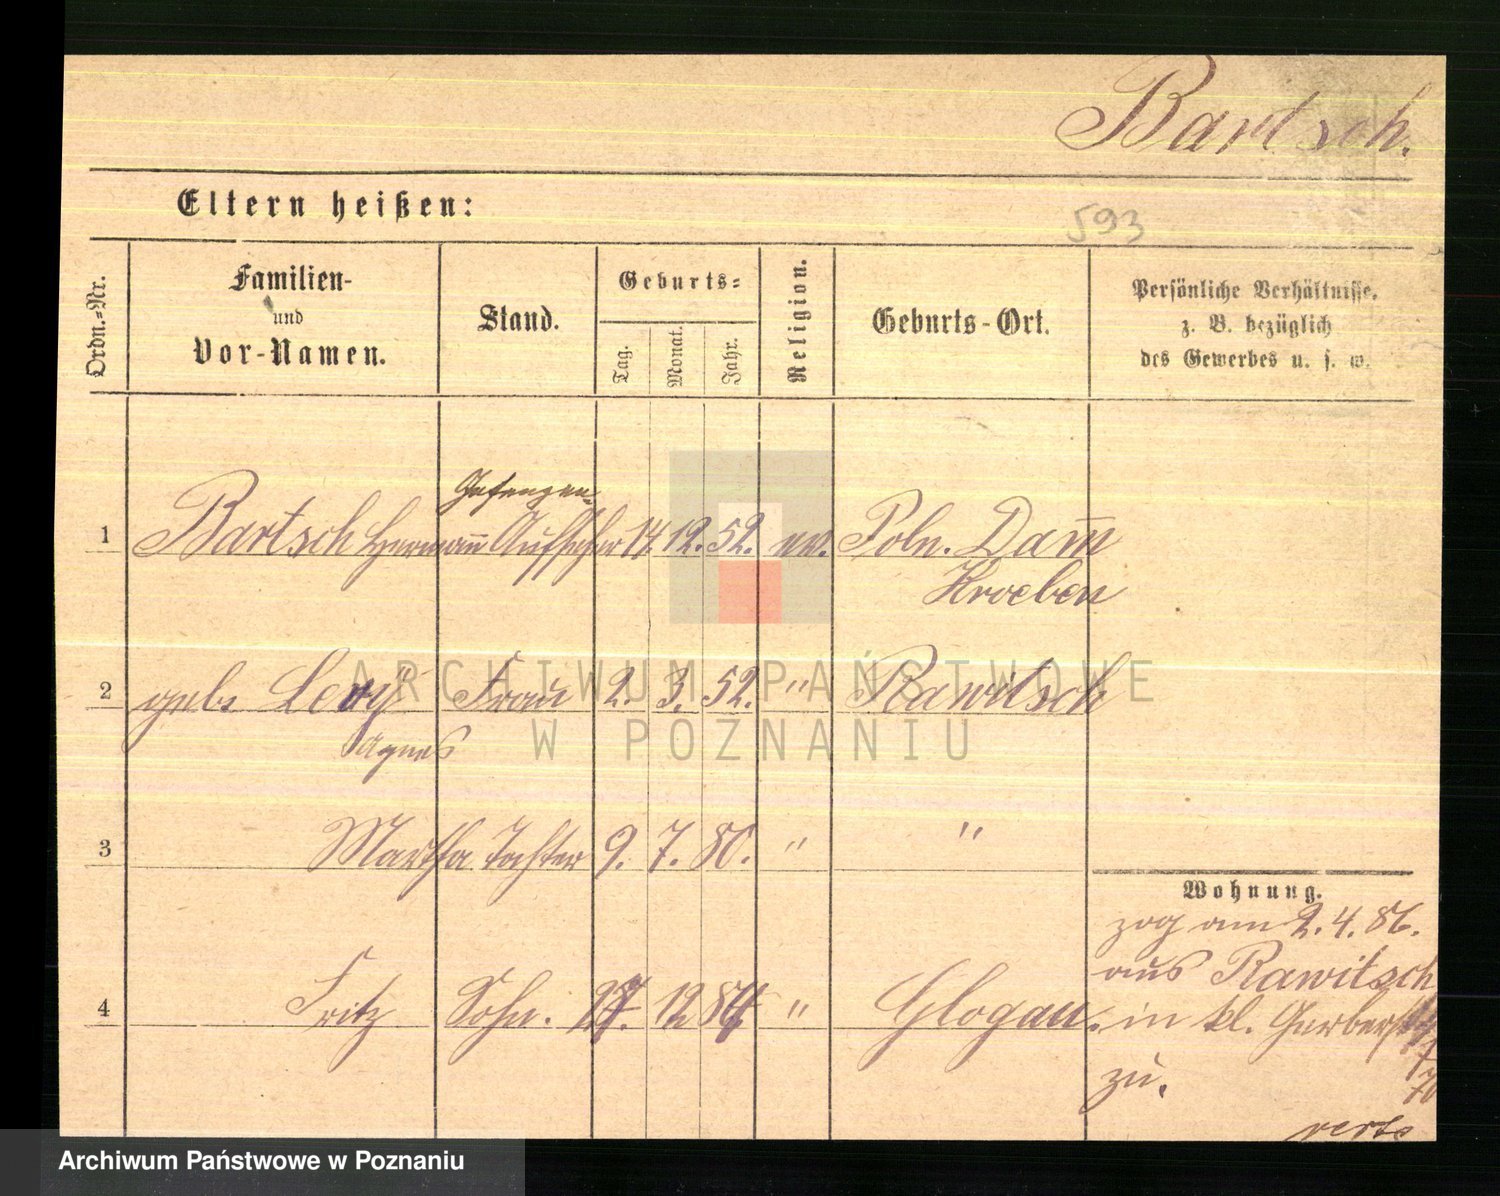 Bartsch.
Eltern heißen:
593
Ordn.-Nr.
Familien-
und
Vor-Namen.
Stand.
Geburts-
Tag.
Monat.
Jahr.
Religion.
Geburts-Ort.
Persönliche Verhältnisse,
z. B. bezüglich
des Gewerbes u. s. w.
Gefangen-
1 Bartsch Hermann̅ Aufseher 14. 12. 52. ev. Poln. Dam̅
Kroeben
2 geb. Levy Frau 2. 3. 52. " Rawitsch
Agnes
3 Martha Tochter 9. 7. 80. " "
Wohnung.
zog am 2. 4. 86.
aus Rawitsch
4 Fritz Sohn. 27. 12 84 " Glogau.
in kl. Gerberstr.
zu.
verte
ARCHIWUM PAŃSTWOWE
W POZNANIU
Archiwum Państwowe w Poznaniu